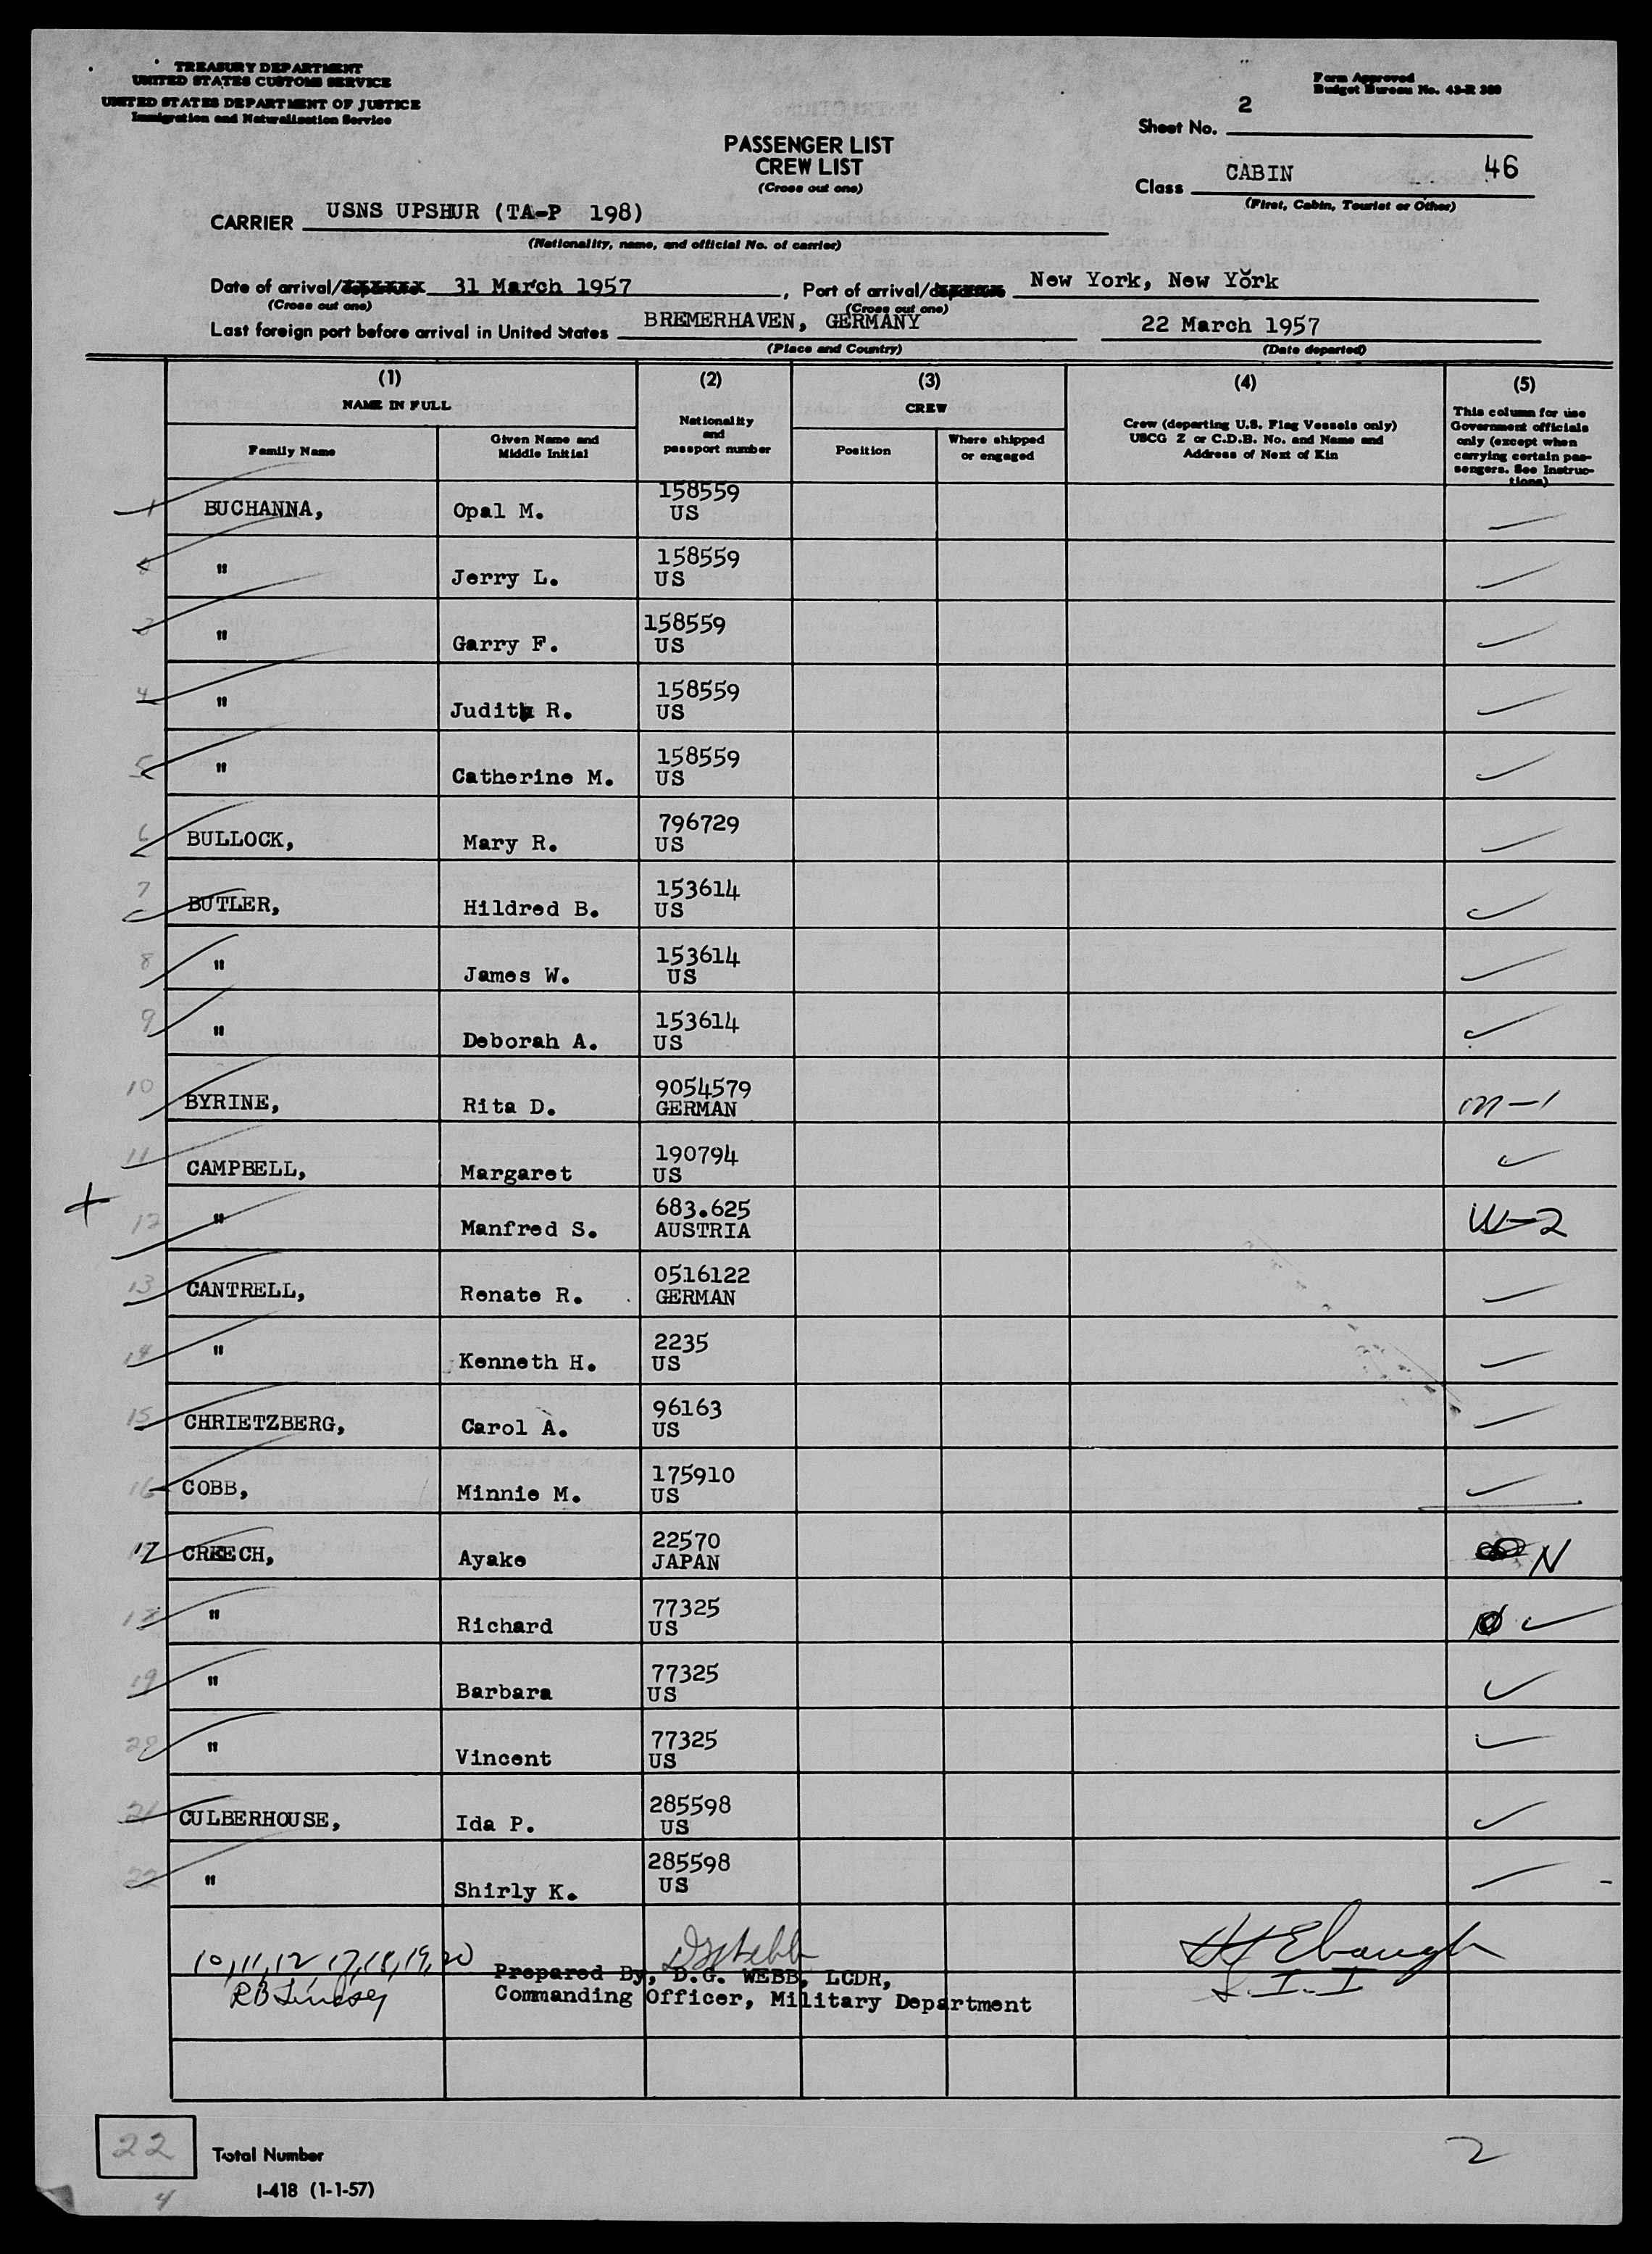 TREASURY DEPARTMENT
UNITED STATES CUSTOMS SERVICE
UNITED STATES DEPARTMENT OF JUSTICE
Immigration and Naturalization Service
Form Approved
Budget Bureau No. 43-R 380
Sheet No. 2
PASSENGER LIST
CREW LIST
(Cross out one)
Class CABIN 46
(First, Cabin, Tourist or Other)
CARRIER USNS UPSHUR (TA-P 198)
(Nationality, name, and official No. of carrier)
Date of arrival/departure 31 March 1957, Port of arrival/departure New York, New York
(Cross out one) (Cross out one)
Last foreign port before arrival in United States BREMERHAVEN, GERMANY 22 March 1957
(Place and Country) (Date departed)
(1) (2) (3) (4) (5)
NAME IN FULL
Family Name
Given Name and Middle Initial
Nationality and passport number
CREW
Position
Where shipped or engaged
Crew (departing U.S. Flag Vessels only)
USCG Z or C.D.B. No. and Name and
Address of Next of Kin
This column for use
Government officials
only (except when
carrying certain pas-
sengers. See Instruc-
tions)
1 BUCHANNA, Opal M. 158559 US
" Jerry L. 158559 US
3 " Garry F. 158559 US
4 " Judith R. 158559 US
5 " Catherine M. 158559 US
6 BULLOCK, Mary R. 796729 US
7 BUTLER, Hildred B. 153614 US
8 " James W. 153614 US
9 " Deborah A. 153614 US
10 BYRINE, Rita D. 9054579 GERMAN m-1
11 CAMPBELL, Margaret 190794 US
+ 12 " Manfred S. 683.625 AUSTRIA W-2
13 CANTRELL, Renate R. 0516122 GERMAN
14 " Kenneth H. 2235 US
15 CHRIETZBERG, Carol A. 96163 US
16 COBB, Minnie M. 175910 US
17 CREECH, Ayako 22570 JAPAN N
18 " Richard 77325 US
19 " Barbara 77325 US
20 " Vincent 77325 US
21 CULBERHOUSE, Ida P. 285598 US
22 " Shirly K. 285598 US
10, 11, 12 17, 18, 19, 20
RB Lindsey
DG Webb
Prepared By, D.G. WEBB, LCDR,
Commanding Officer, Military Department
Ebaugh
I.I
22 Total Number
I-418 (1-1-57)
4
2